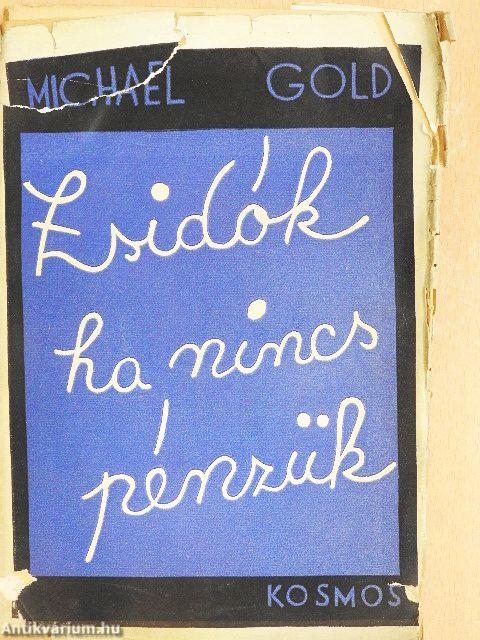 MICHAEL GOLD
Zsidók
ha nincs
pénzük
KOSMOS
Antikvárium.hu